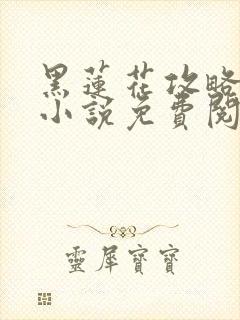 黑蓮花攻略
小說免費閱
靈犀寶寶